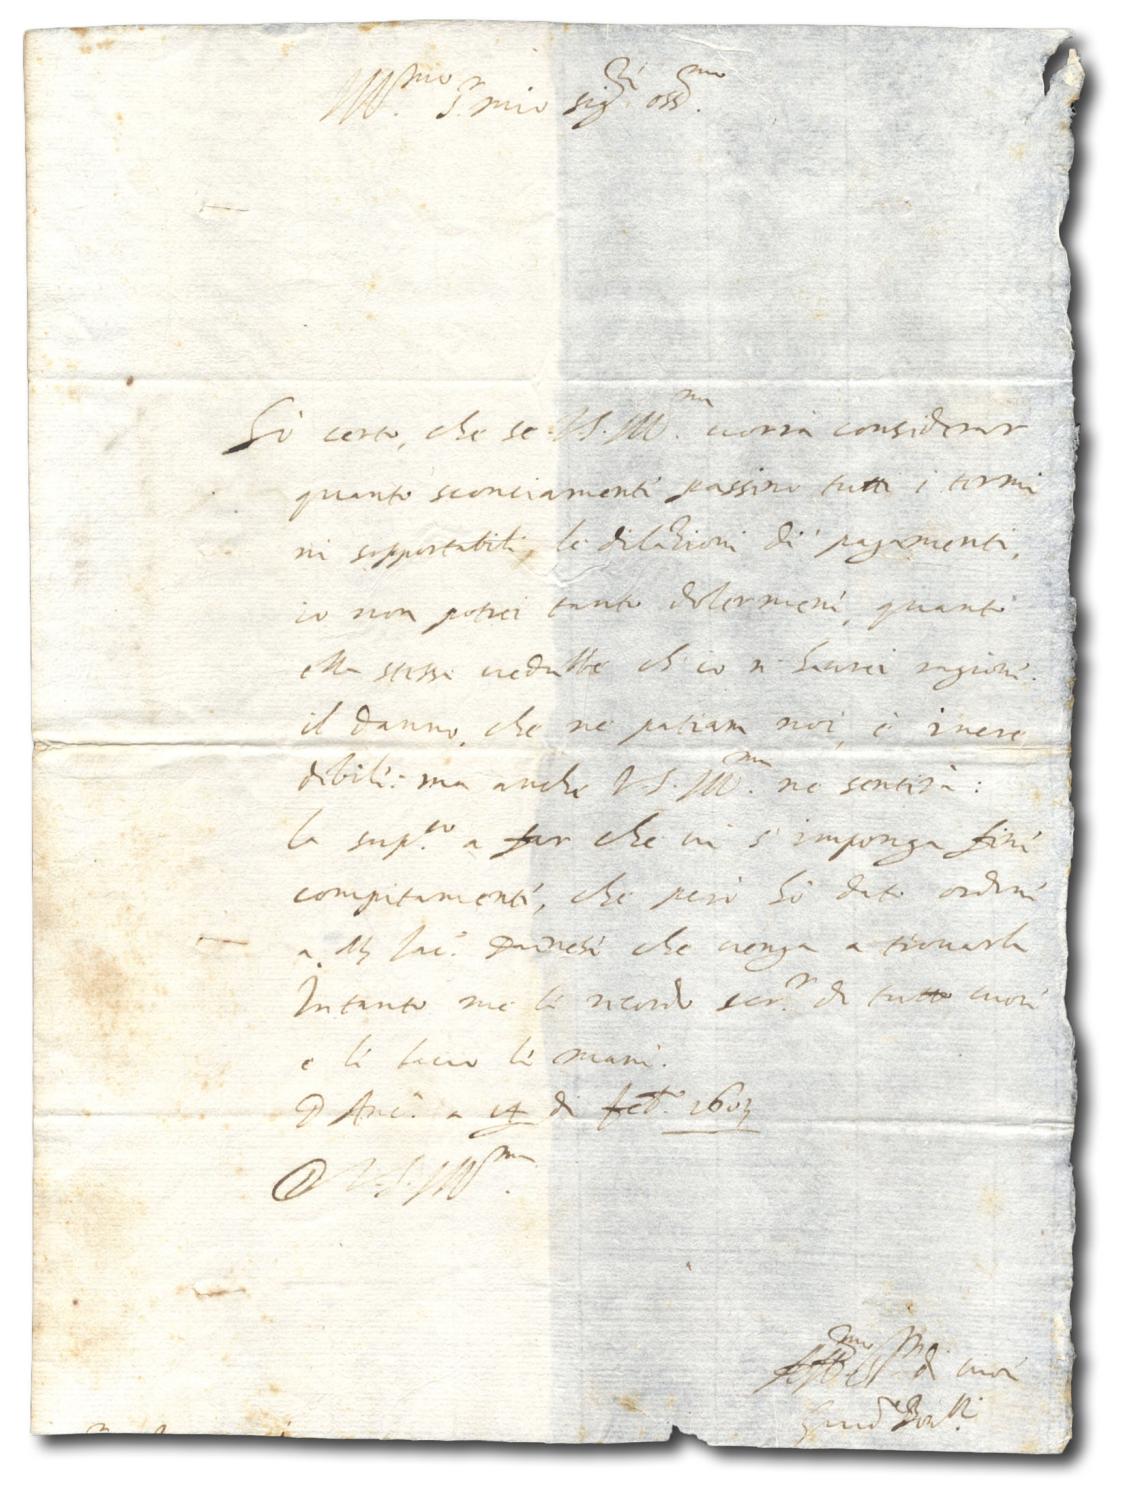 Ill.mo S.r mio sig.r oss.mo
Sò certo, che se V.S. Ill.ma vorrà considerar
quanto sconciamente passino tutti i termi
ni sopportabili, le dilazioni di pagamenti,
io non potrei tanto dolermene, quanto
ella stessa vedrebbe ch'io n'haurei ragione.
il danno, che ne patiam noi, è incre
dibile: ma anche V.S. Ill.ma ne sentirà:
la sup.co a far che vi s'imponga fine
compitamente, che però hò dato ordine
a M. Iac.o che venga a trovarla
Intanto me le ricordo ser.re di tutto cuore
e le bacio le mani.
D'Anc.a a 14 di feb.o 1603
D V.S. Ill.ma
Aff.mo ser.re di cuore